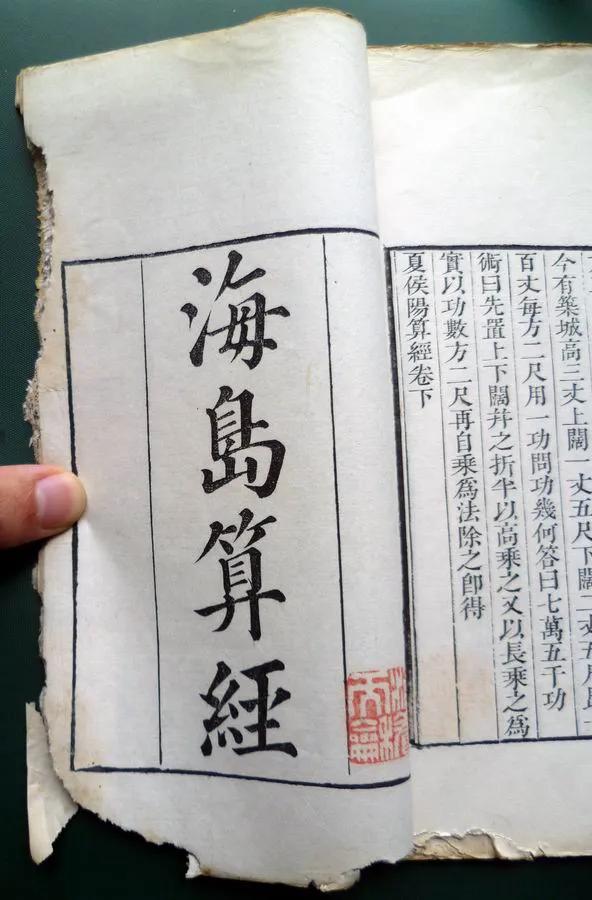 今有築城高三丈上闊一丈五尺下闊二丈五尺長一
百丈每方二尺用一功問功幾何答曰七萬五千功
術曰先置上下闊并之折半以高乘之又以長乘之為
實以功數方二尺再自乘為法除之即得
夏侯陽算經卷下
海島算經